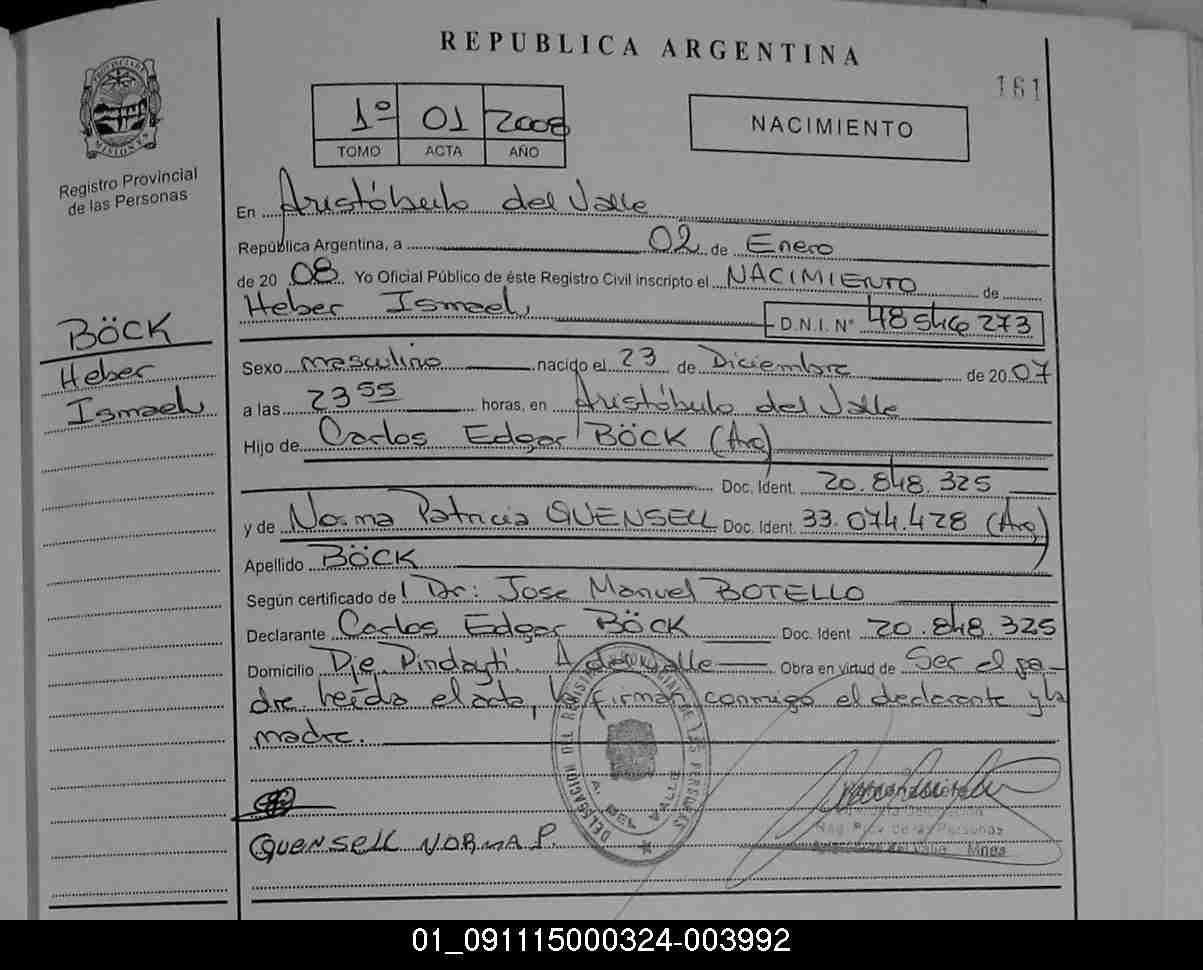 REPUBLICA ARGENTINA
161
PROVINCIA DE MISIONES
Registro Provincial
de las Personas
1º 01 2008
TOMO ACTA AÑO
NACIMIENTO
En Aristóbulo del Valle
República Argentina, a 02 de Enero
de 20 08 Yo Oficial Público de éste Registro Civil inscripto el NACIMIENTO de
Heber Ismael D.N.I. N° 48546273
BÖCK
Heber
Ismael
Sexo masculino nacido el 23 de Diciembre de 20 07
a las 23 55 horas, en Aristóbulo del Valle
Hijo de Carlos Edgar BÖCK (Arg)
Doc. Ident. 20.848.325
y de Norma Patricia QUENSELL Doc. Ident. 33.074.428 (Arg)
Apellido BÖCK
Según certificado de Dr: Jose Manuel BOTELLO
Declarante Carlos Edgar BÖCK Doc. Ident 20.848.325
Domicilio Pje Pindayti. A del Valle Obra en virtud de Ser el pa-
dre leída el acta, la firman conmigo el declarante y la
madre.
DELEGACION DEL REGISTRO PROVINCIAL DE LAS PERSONAS
A. DEL VALLE
Reg. Prov. de las Personas
Aristóbulo del Valle Mnes
QUENSELL NORMA P.
01_091115000324-003992